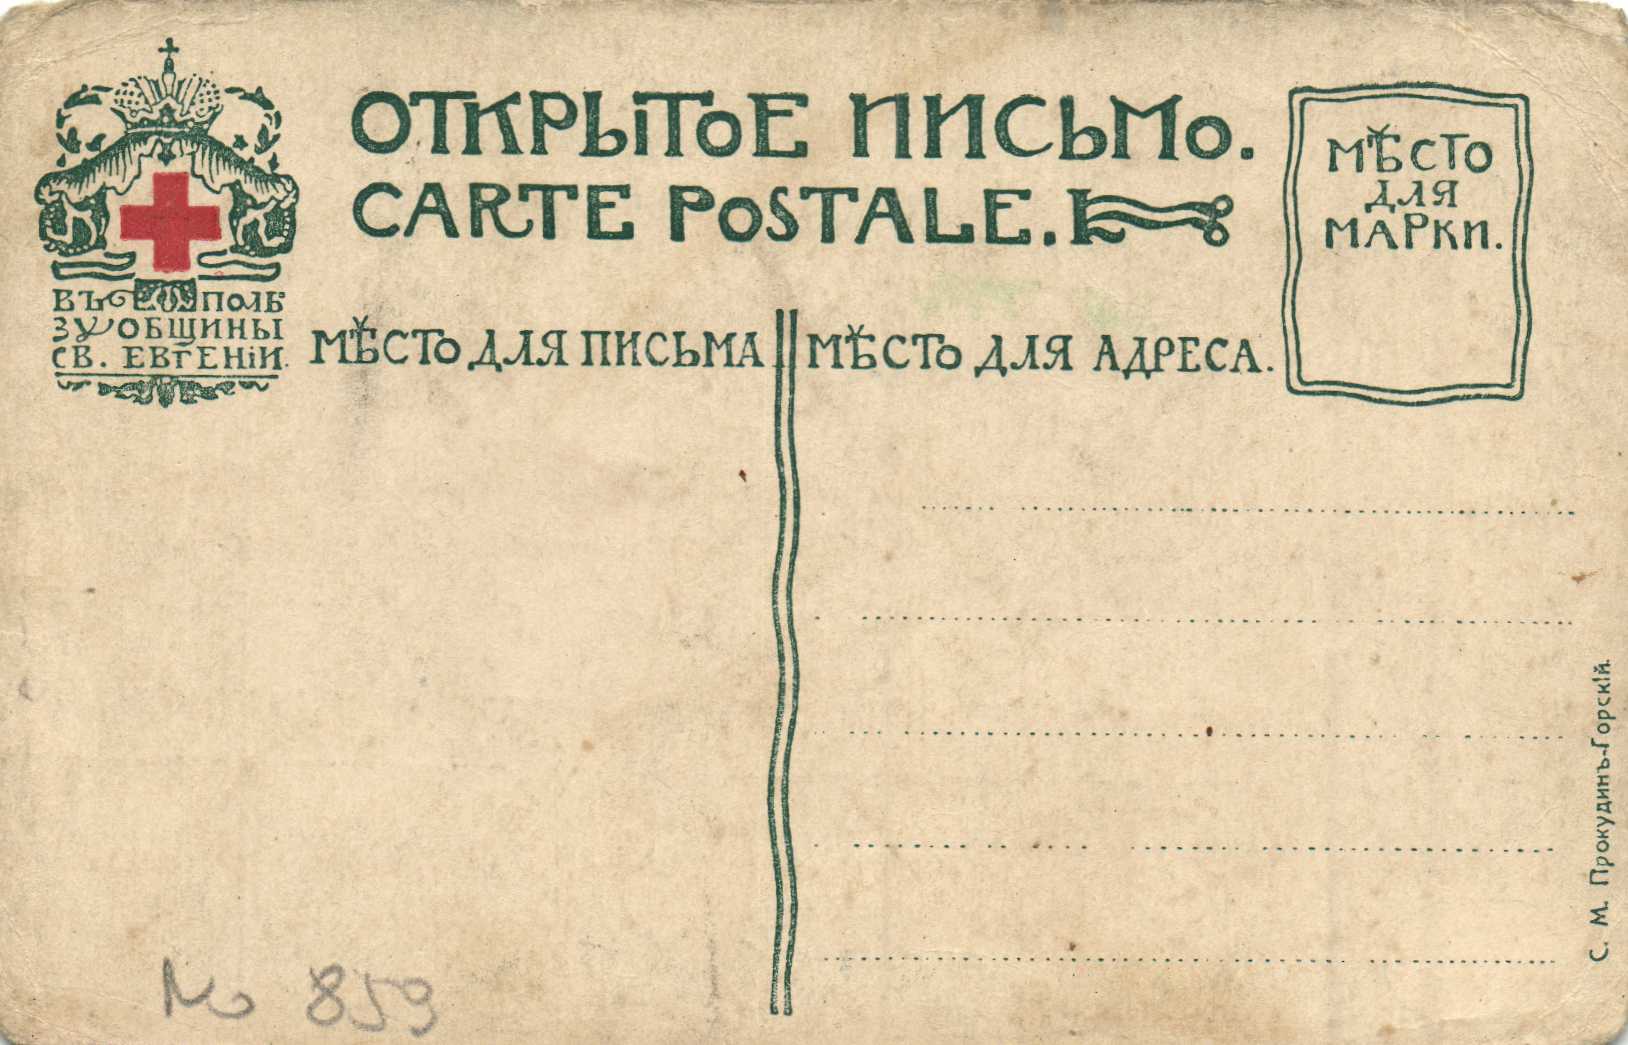 ОТКРЫТОЕ ПИСЬМО.
CARTE POSTALE.
МѢСТО
ДЛЯ
МАРКИ.
ВЪ ПОЛЬ
ЗУ ОБЩИНЫ
СВ. ЕВГЕНІИ.
МѢСТО ДЛЯ ПИСЬМА
МѢСТО ДЛЯ АДРЕСА.
С. М. Прокудинъ-Горскій.
№ 859